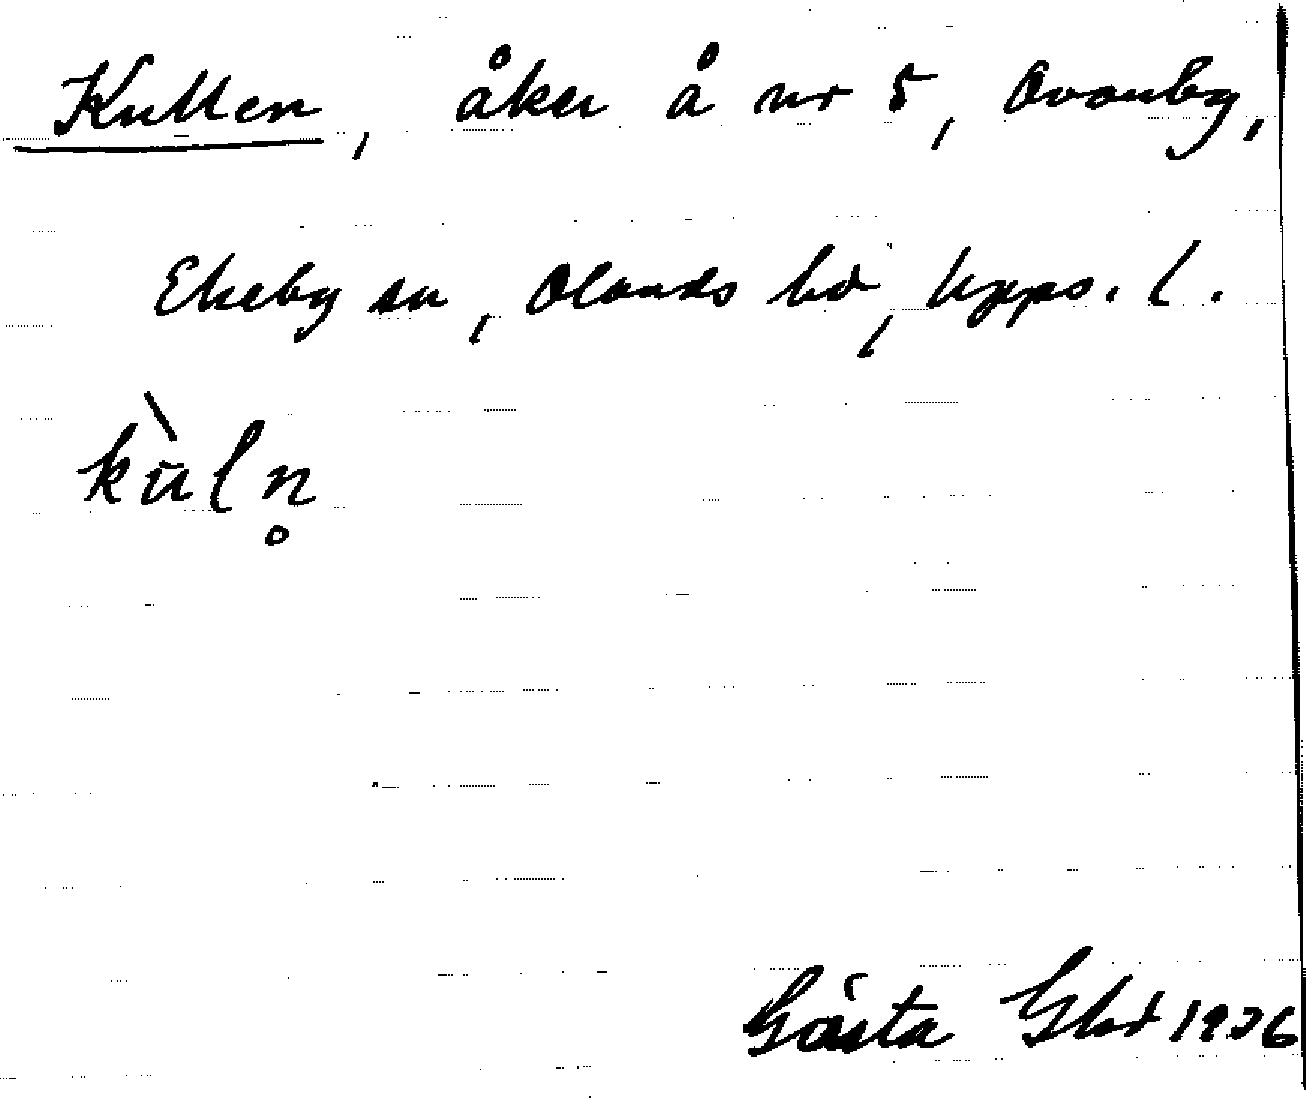 Kullen, åker å nr 5, Ovanby,
Ekeby sn, Olands hd, Upps. l.
kùln̥
Gösta 1936